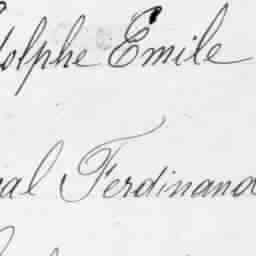 dolphe Emile
al Ferdinand